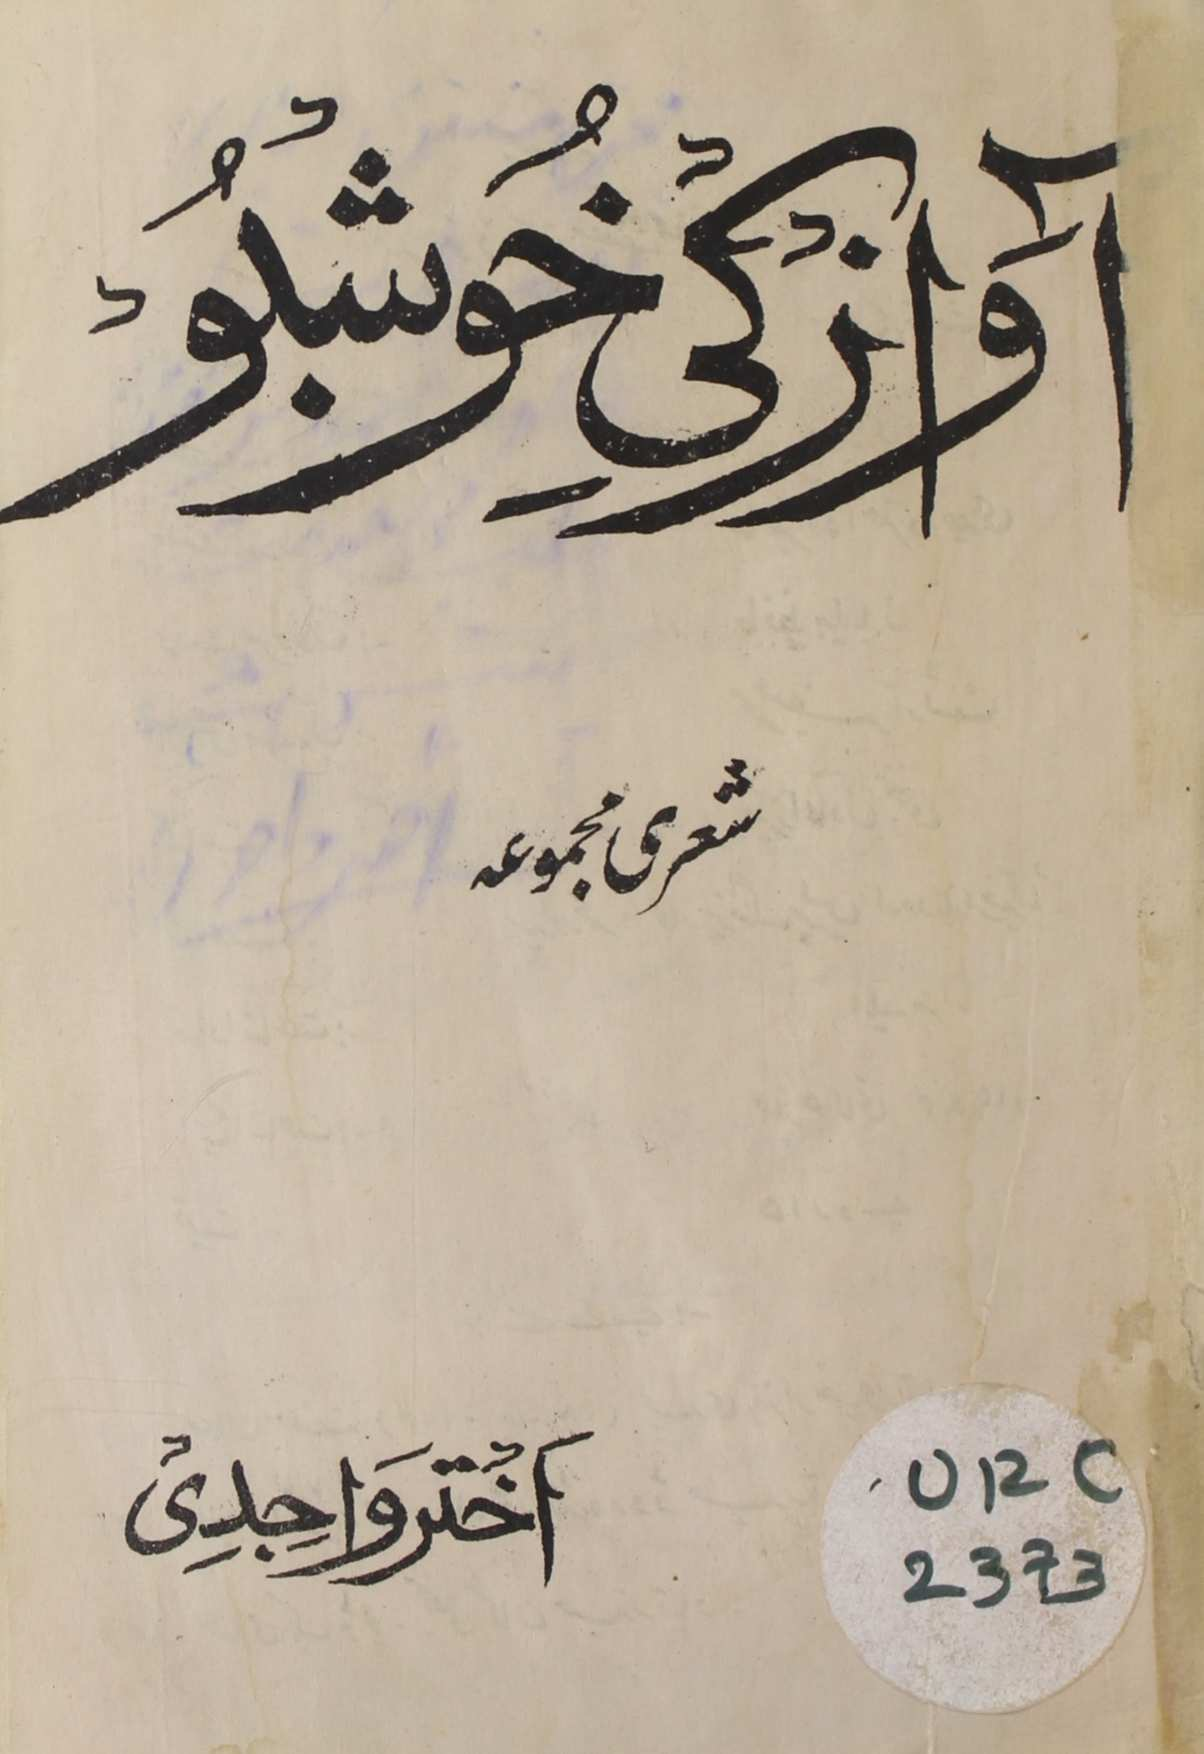 آوَازْ کیْ خُوَشْبُوْ
شعری مجموعہ
اَخْتَر وَاجِدِیْ
URC
2373